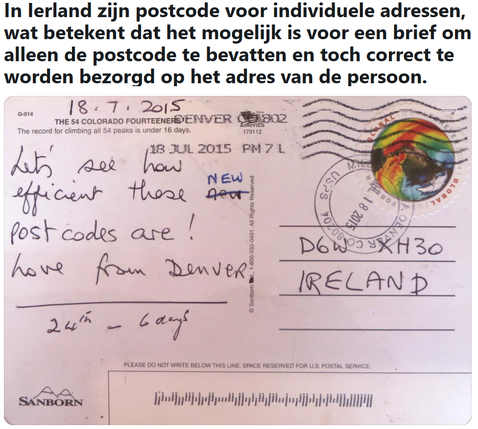 In Ierland zijn postcode voor individuele adressen,
wat betekent dat het mogelijk is voor een brief om
alleen de postcode te bevatten en toch correct te
worden bezorgd op het adres van de persoon.
18.7.2015
G-014
THE 54 COLORADO FOURTEENERS
DENVER CO 802
The record for climbing all 54 peaks is under 16 days.
America
179112
18 JUL 2015 PM 7 L
Let's see how
efficient these new NEW
postcodes are!
Love from Denver
24th - 6 days
© Sanborn Inc. 1-800-332-0491. All Rights Reserved
GLOBAL
FOREVER
USPS
JUL 18 2015
DENVER CO 80201
D6W XH30
IRELAND
PLEASE DO NOT WRITE BELOW THIS LINE. SPACE RESERVED FOR U.S. POSTAL SERVICE.
SANBORN